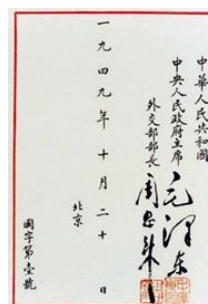 中華人民共和國
中央人民政府主席
毛澤东
外交部部長
周恩来
一九四九年十月二十日
北京
國字第壹號